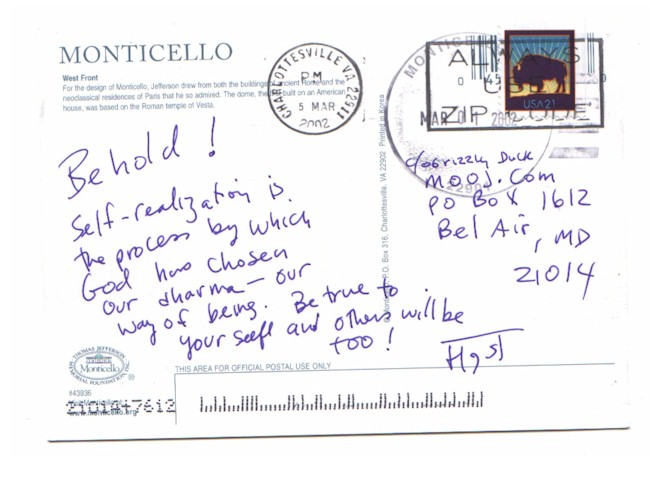 MONTICELLO
West Front
For the design of Monticello, Jefferson drew from both the buildings of ancient Rome and the
neoclassical residences of Paris that he so admired. The dome, the built on an American
house, was based on the Roman temple of Vesta.
CHARLOTTESVILLE VA 22911
PM
5 MAR
2002
MONTICE
ALWAYS
USE
ZIP
MAR 2002
USA21
Behold!
Self-realization is
the process by which
God has chosen
our dharma — our
way of being. Be true to
your self and others will be
too!
Hgst
c/o Grizzly Duck
mooj.com
PO Box 1612
Bel Air, MD
21014
P.O. Box 316, Charlottesville, VA 22902 Printed in Korea
THOMAS JEFFERSON
Monticello
MEMORIAL FOUNDATION, INC.
®
#43936
www.monticello.org
210147612
THIS AREA FOR OFFICIAL POSTAL USE ONLY